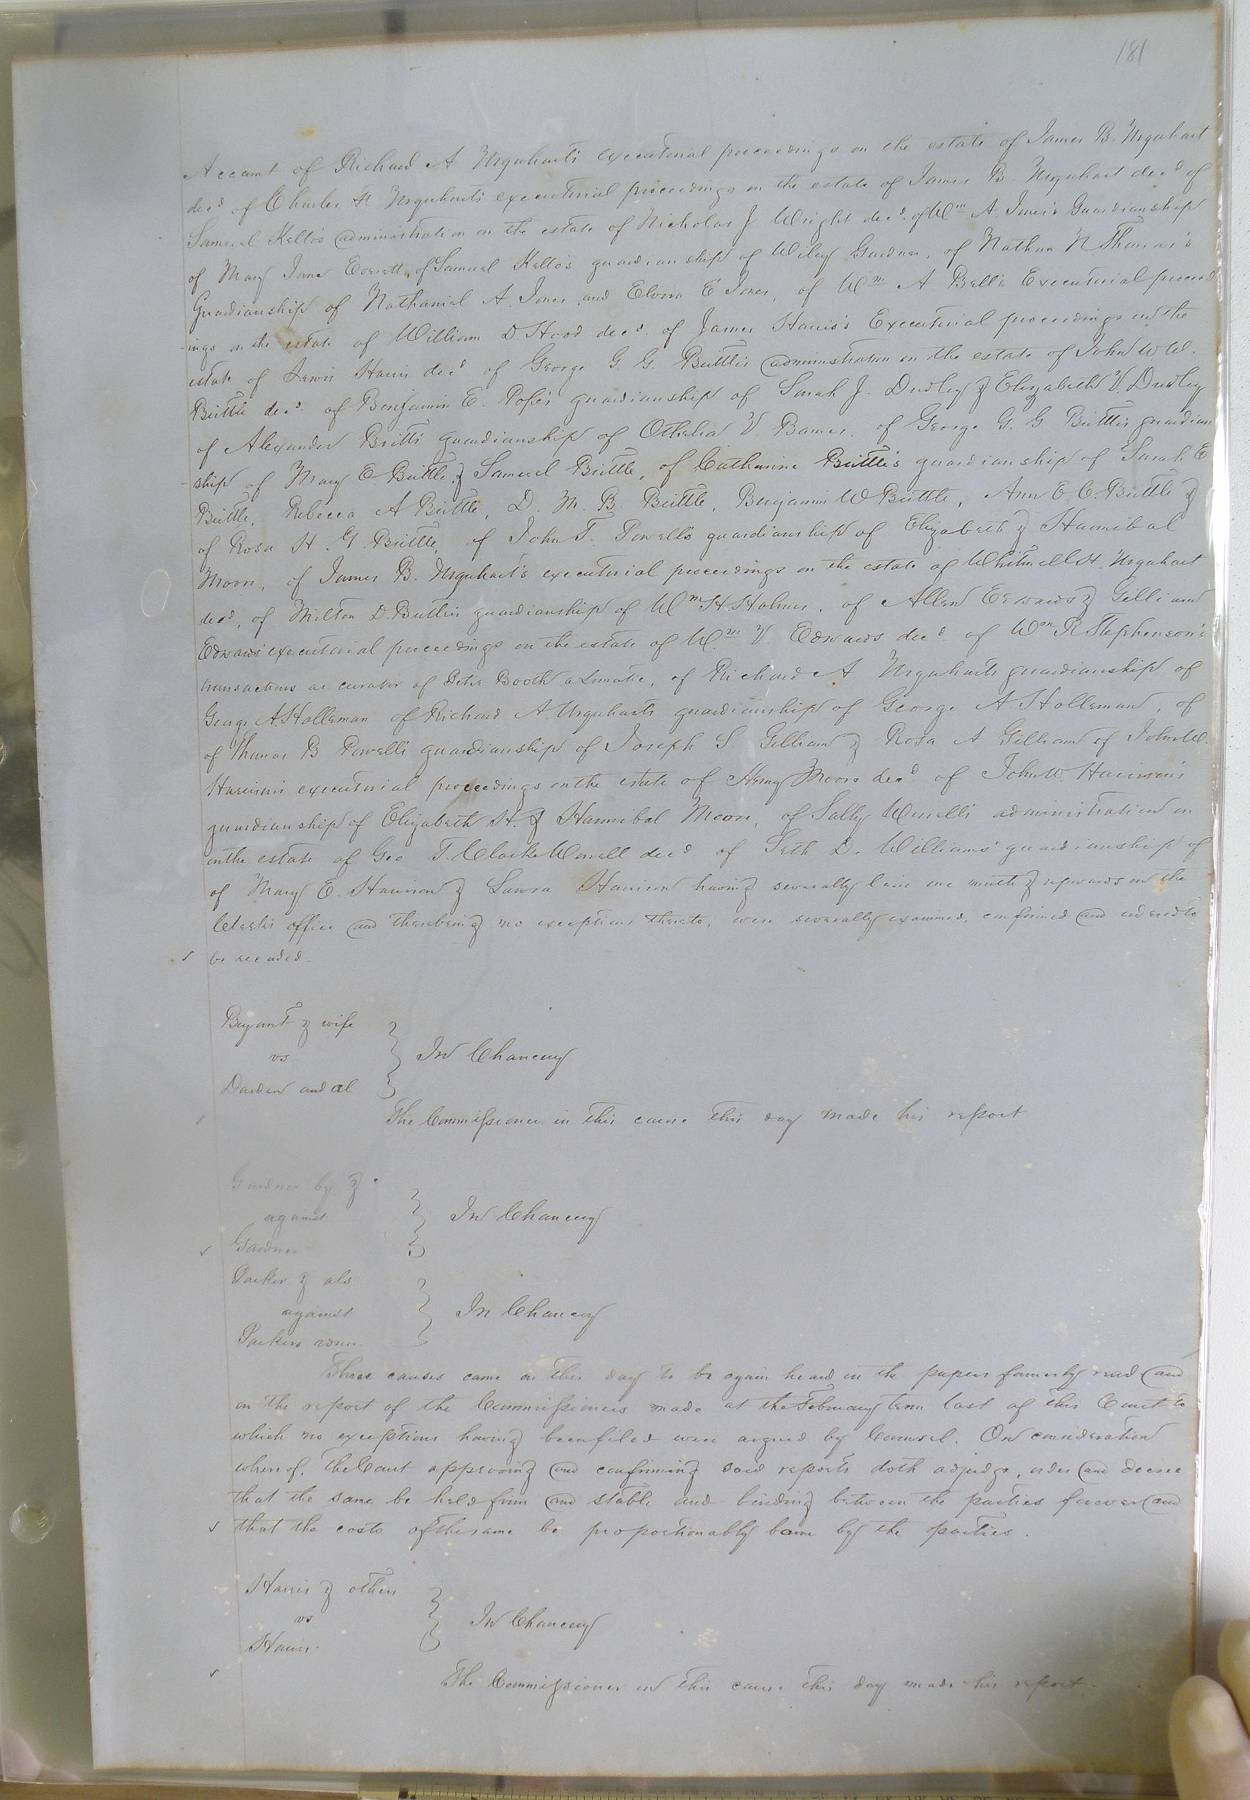 181
Account of Richard A Urquhart's executorial proceedings on the estate of James B. Urquhart
decd of Charles H Urquhart's executorial proceedings on the estate of James B. Urquhart decd of
Samuel Kello's administration on the estate of Nicholas J Wright decd. of Wm A. Jones's Guardianship
of Mary Jane Everett, of Samuel Kello's guardianship of Wiley Gardner, of Nathan N Thomas's
Guardianship of Nathaniel A Jones, and Elvira E Jones, of Wm A Bell's Executorial proceed
-ings on the estate of William D Hood decd. of James Harris's Executorial proceedings on the
estate of Lewis Harris decd of George G. G. Brittle's administration on the estate of John W W.
Brittle decd. of Benjamin E. Pope's guardianship of Sarah J. Dudley & Elizabeth V. Dudley
of Alexander Britt's guardianship of Othelia V. Barnes. of George G. G Brittle's guardian
-ship of Mary E Brittle, & Samuel Brittle, of Catharine Brittle's guardianship of Sarah E
Brittle, Rebecca A Brittle, D. M. B Brittle, Benjamin W Brittle, Ann E. C. Brittle &
of Rosa H. G. Brittle, of John T. Powell's guardianship of Elizabeth & Hannibal
Moore, of James B. Urquhart's executorial proceedings on the estate of Whitmell H. Urquhart
decd, of Milton D. Butler's guardianship of Wm H. Holmes, of Allen Edwards & Gilliam
Edwards' executorial proceedings on the estate of Wm V Edwards decd of Wm R Stephenson's
transactions as curator of Peter Booth a Lunatic, of Richard A Urquharts guardianship of
George A. Holleman of Richard A Urquharts guardianship of George A Holleman, of
of Thomas B Powell's guardianship of Joseph S. Gilliam & Rosa A Gilliam of John W.
Harrison's executorial proceedings on the estate of Henry Moore decd of John W Harrison's
guardianship of Elizabeth H. & Hannibal Moore, of Sally Worrell's administration on
on the estate of Geo T. Clarke Worrell decd of Seth D. Williams' guardianship of
of Mary E. Harrison & Laura Harrison having severally lain one month & upwards in the
Clerk's office and there being no exceptions thereto, were severally examined, confirmed and ordered to
be recorded.
Bryant & wife
vs
Darden and al
In Chancery
The Commissioner in this cause this day made his report
Gardner by &c
against
Gardner
In Chancery
Parker & als
against
Parkers
In Chancery
These causes came on this day to be again heard on the papers formerly read and
on the report of the Commissioners made at the February term last of this Court to
which no exceptions having been filed were argued by Counsel. On consideration
whereof, the Court approving and confirming said reports doth adjudge, order and decree
that the same be held firm and stable and binding between the parties forever and
that the costs of the same be proportionably borne by the parties.
Harris & others
vs
Harris
In Chancery
The Commissioner in this cause this day made his report.